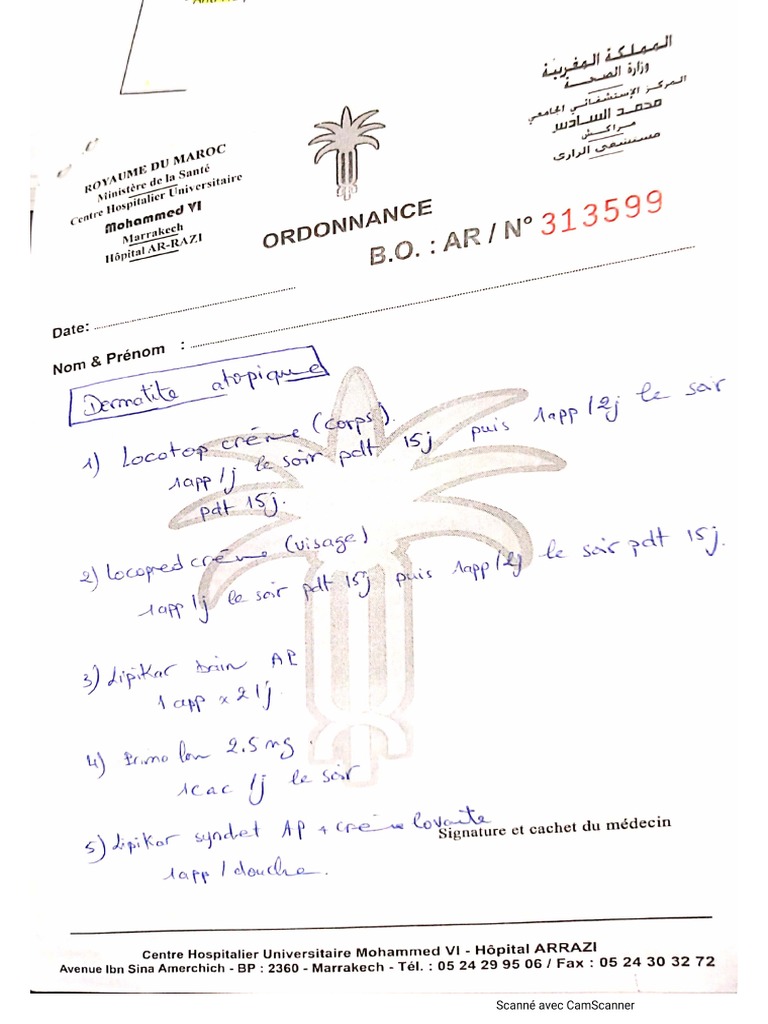 ROYAUME DU MAROC
Ministère de la Santé
Centre Hospitalier Universitaire
Mohammed VI
Marrakech
Hôpital AR-RAZI
المملكة المغربية
وزارة الصحة
المركز الإستشفائي الجامعي
محمد السادس
مراكش
مستشفى الرازي
ORDONNANCE
B.O. : AR / N° 313599
Date:
Nom & Prénom :
Dermatite atopique
1) Locotop crème (corps).
1app/j le soir pdt 15j puis 1app/2j le soir
pdt 15j.
2) Locopred crème (visage)
1app/j le soir pdt 15j puis 1app/2j le soir pdt 15j.
3) Lipikar AP
1 app x 2/j.
4) 2.5mg.
1cac /j le soir
5) Lipikar syndet AP + crème lavante
Signature et cachet du médecin
1app/douche.
Centre Hospitalier Universitaire Mohammed VI - Hôpital ARRAZI
Avenue Ibn Sina Amerchich - BP : 2360 - Marrakech - Tél. : 05 24 29 95 06 / Fax : 05 24 30 32 72
Scanné avec CamScanner